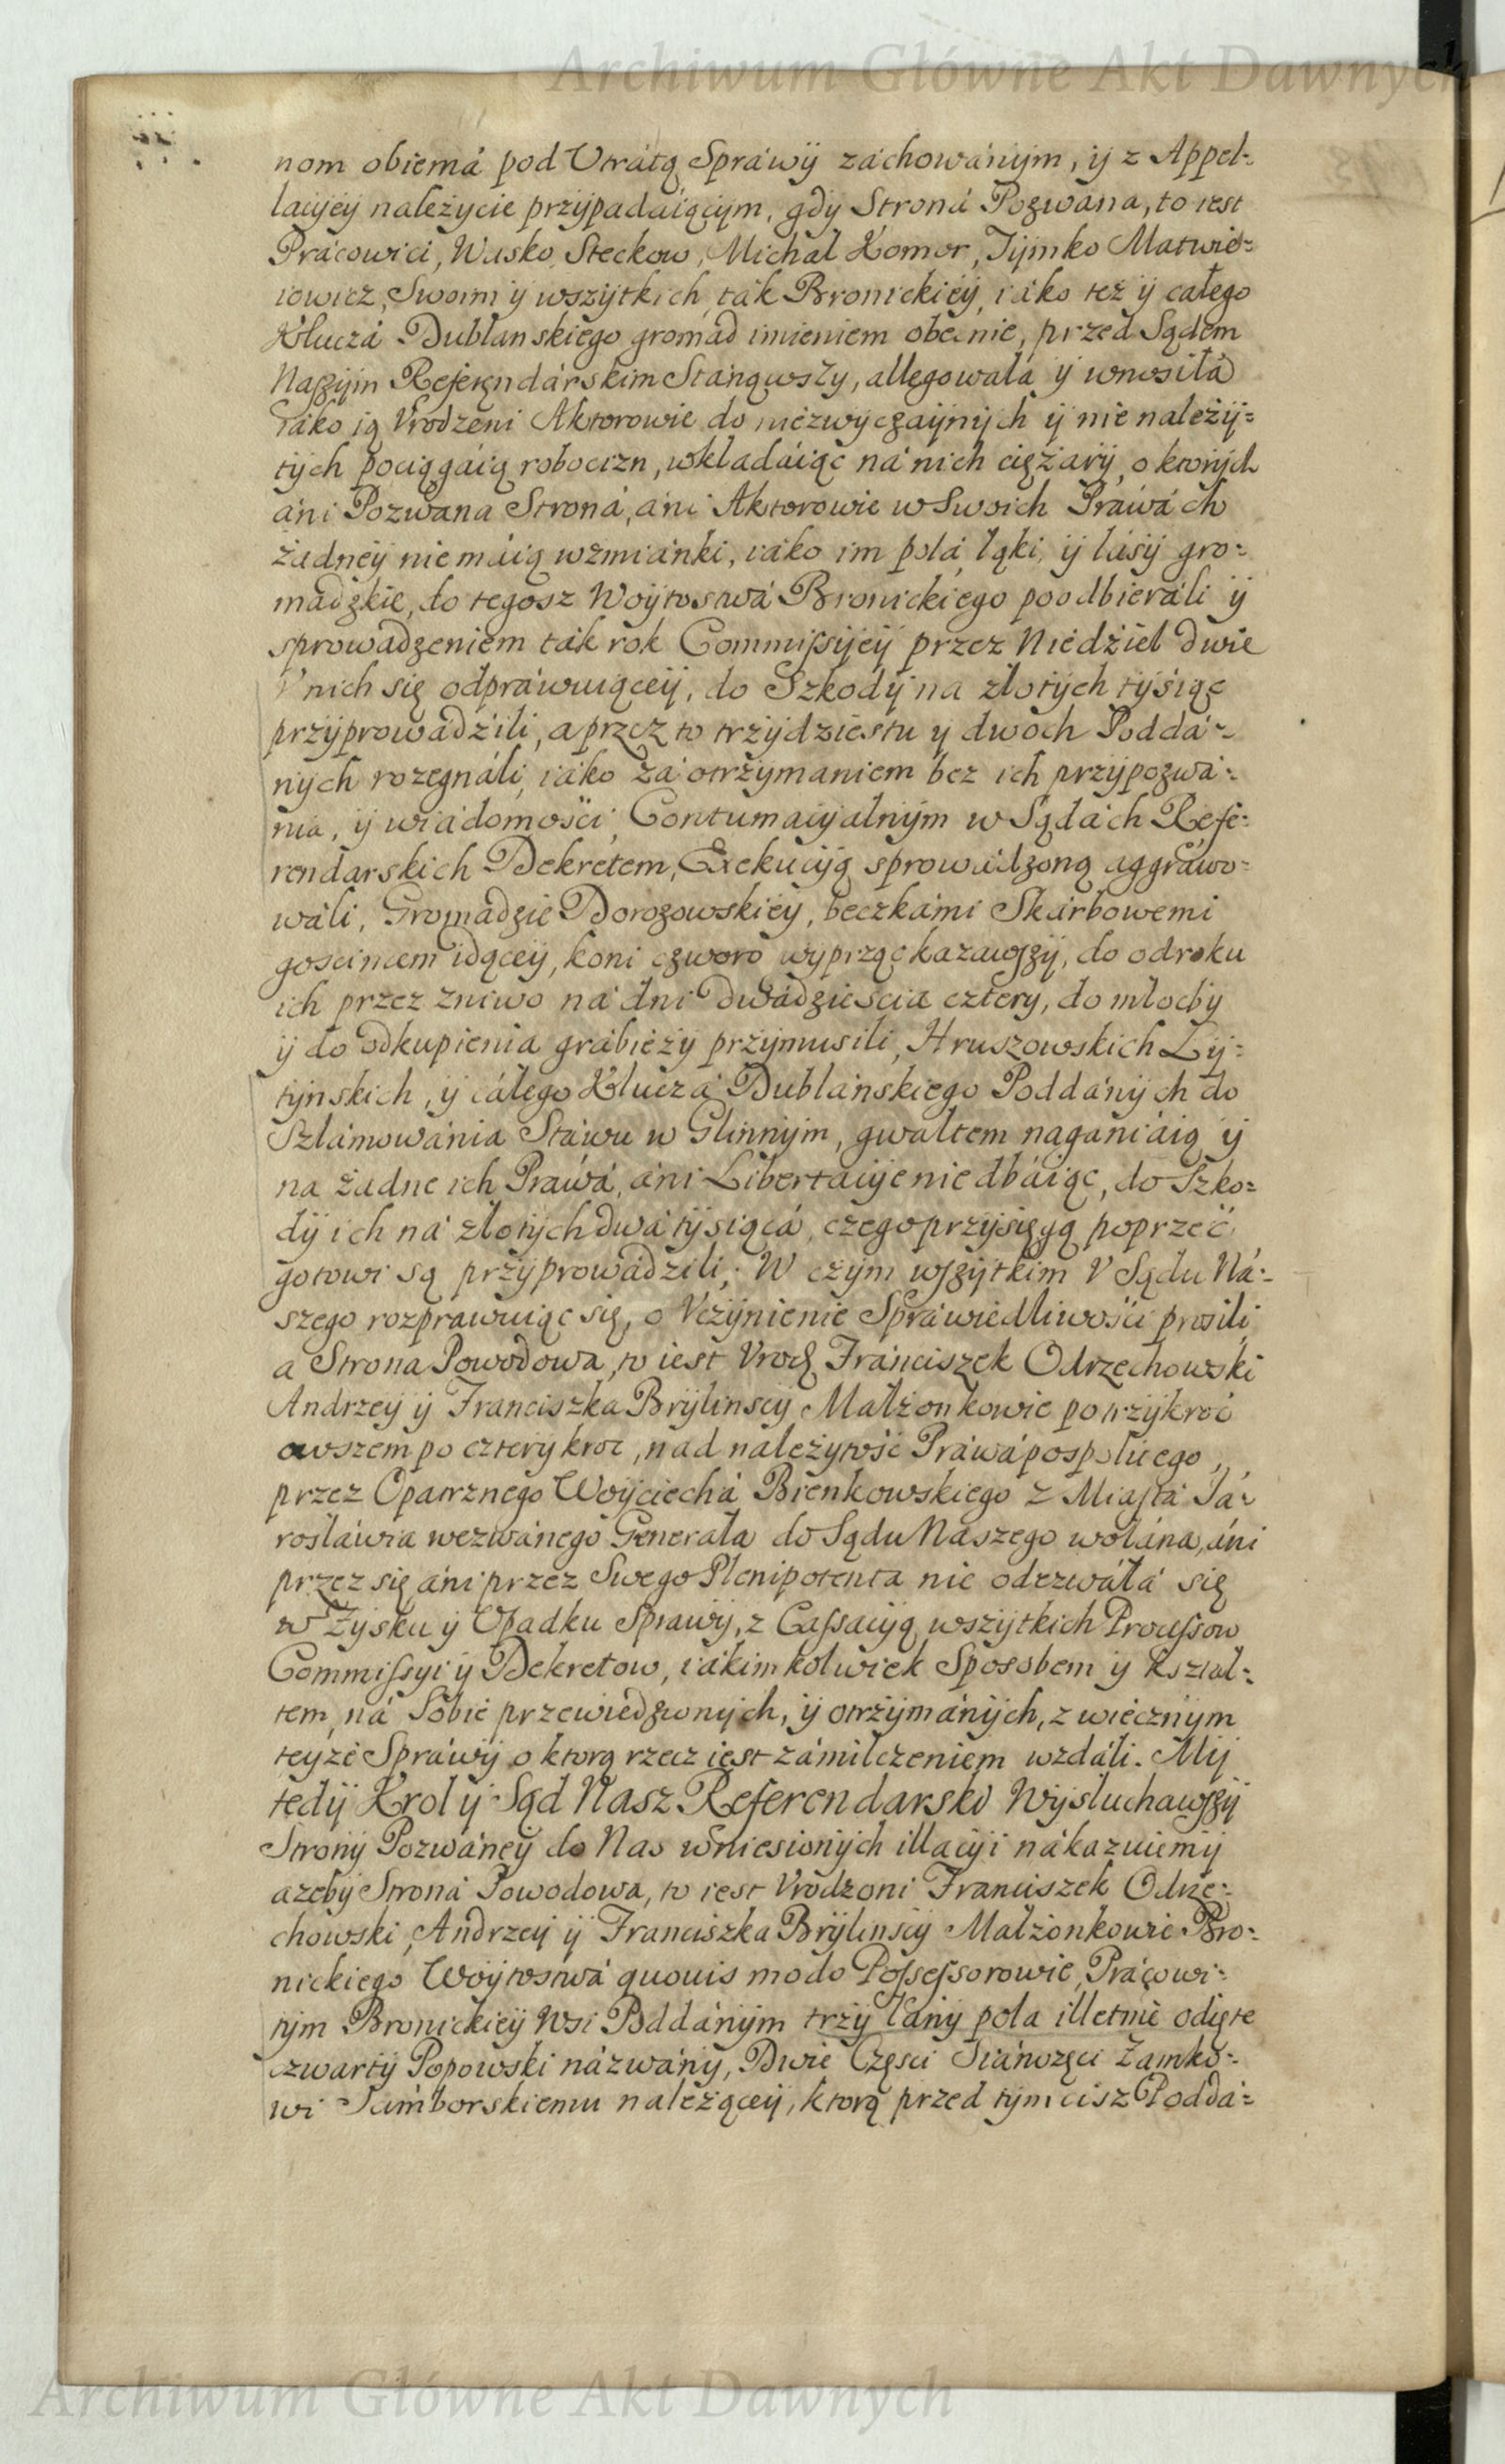 Archiwum Główne Akt Dawnych
nom obiemá pod Utratą Spráwÿ záchowánÿm, ÿ z Appel=
lacÿeÿ należÿcie przÿpadáiącÿm, gdÿ Stroná Pozwana, to iest
Prácowici, Wasko Steckow, Michał Komor, Tÿmko Matwie=
iowicz, Swoim ÿ wszÿtkich, ták Bronickieÿ, iáko też ÿ całego
Kluczá Dublanskiego gromad imieniem obecnie, przed Sądem
Naszÿm Referęndárskim Stánąwszy, allegowała ÿ wnosiłá
Jáko ią Vrodzeni Aktorowie do niezwÿczaÿnÿch ÿ nie należÿ=
tÿch pociągáią robocizn, wkładáiąc ná nich ciężarÿ, o ktorÿch
áni Pozwana Stroná, áni Aktorowie w Swoich Práwách
żadneÿ nie máią wzmiánki, iáko im polá, łąki, ÿ lásÿ gro=
mádzkie, do tegosz Woÿtostwá Bronickiego poodbieráli ÿ
sprowadzeniem ták rok Commissÿeÿ przez Niedźiel dwie
V nich się odpráwuiąceÿ, do Szkodÿ na złotÿch tÿsiąc
przÿprowádźili, a przez to trzÿdziestu y dwoch Poddá=
nÿch rozegnáli, iáko zá otrzÿmaniem bez ich przÿpozwá=
nia, ÿ wiadomośći, Contumacÿalnÿm w Sądách Refe=
rendarskich Dekretem, Exekucÿą sprowadzoną aggráwo=
wáli, Gromadzie Dorozowskieÿ, beczkámi Skárbowemi
goscincem idąceÿ, koni czworo wyprząc kazawszÿ, do odroku
ich przez żniwo ná dni dwádziescia cztery, do młocby
ÿ do odkupienia grábieżÿ przÿmusili, Hruszowskich Lÿ=
tÿnskich, ÿ cáłego Kluczá Dublánskiego Poddánÿch do
Szlámowánia Stáwu w Glinnÿm, gwałtem nagániáią ÿ
na żadne ich Práwá, áni Libertacÿe nie dbáiąc, do Szko=
dÿ ich ná złotÿch dwá tÿsiącá, czego przÿsięgą poprzeć
gotowi są przÿprowádzili, W czÿm wszÿtkim V Sądu Ná=
szego rozprawuiąc się, o Vczÿnienie Spráwiedliwośći prosili
a Strona Powodowa, to iest Vrodz Fránciszek Odrzechowski
Andrzeÿ ÿ Franciszka Brÿlinscÿ Małżonkowie po trzÿkroć
owszem po czterÿkroc, nad należÿtość Práwá pospolitego,
przez Opatrznego Woÿciechá Bienkowskiego z Miasta Já=
rosławia wezwánego Generała do Sądu Naszego wołána, áni
przez się áni przez Swego Plenipotenta nie odezwáłá się
w Zÿsku ÿ Upadku Sprawÿ, z Cassacÿą wszÿtkich Processow
Commissyi ÿ Dekretow, iákim kolwiek Sposobem ÿ kształ=
tem, ná Sobie przewiedzionÿch, ÿ otrzÿmánÿch, z wiecznÿm
teÿże Spráwÿ o ktorą rzecz iest zámilczeniem wzdáli. Mÿ
tedÿ Krol ÿ Sąd Nasz Referendarski Wÿsłuchawszÿ
Stronÿ Pozwáneÿ do Nas wniesionÿch illacÿi nákazuiemÿ
azebÿ Stroná Powodowa, to iest Vrodzoni Franciszek Odrze=
chowski, Andrzeÿ ÿ Franciszka Brÿlinscÿ Małżonkowie Bro=
nickiego Woÿtostwá quouis modo Possessorowie, Prácowi=
tÿm Bronickieÿ Wsi Poddánÿm trzÿ łanÿ pola illetnie odięte
czwartÿ Popowski názwánÿ, Dwie Częsci Stánozęci Zamko=
wi Sámborskiemu należąceÿ, ktorą przed tÿm cisz Poddá=
Archiwum Główne Akt Dawnych